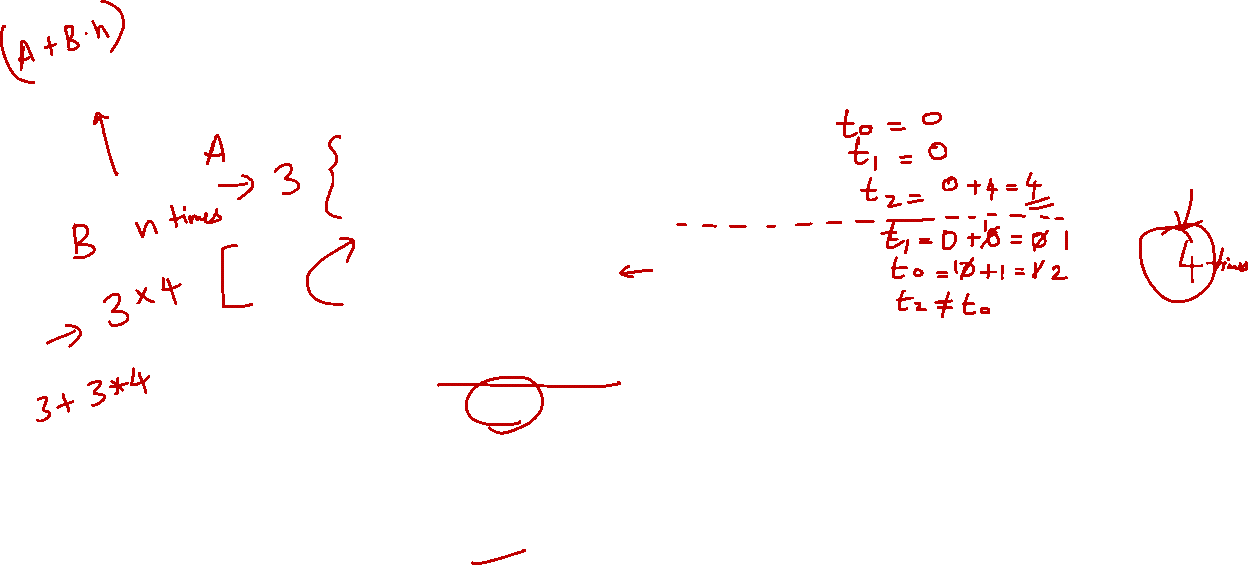 (A + B·n)
A
→ 3 {
B n times
→ 3 × 4 [
3 + 3*4
t₀ = 0
t₁ = 0
t₂ = 0 + 4 = 4
t₁ = 0 + 1 = 1
t₀ = 1 + 1 = 2
t₂ ≠ t₀
4 times